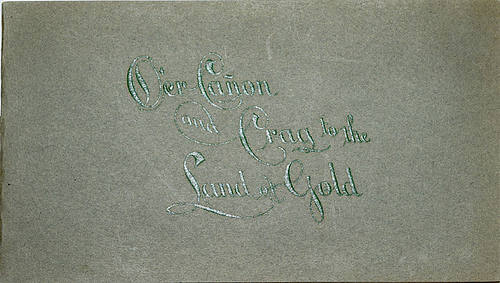 O'er Cañon
and Crag to the
Land of Gold